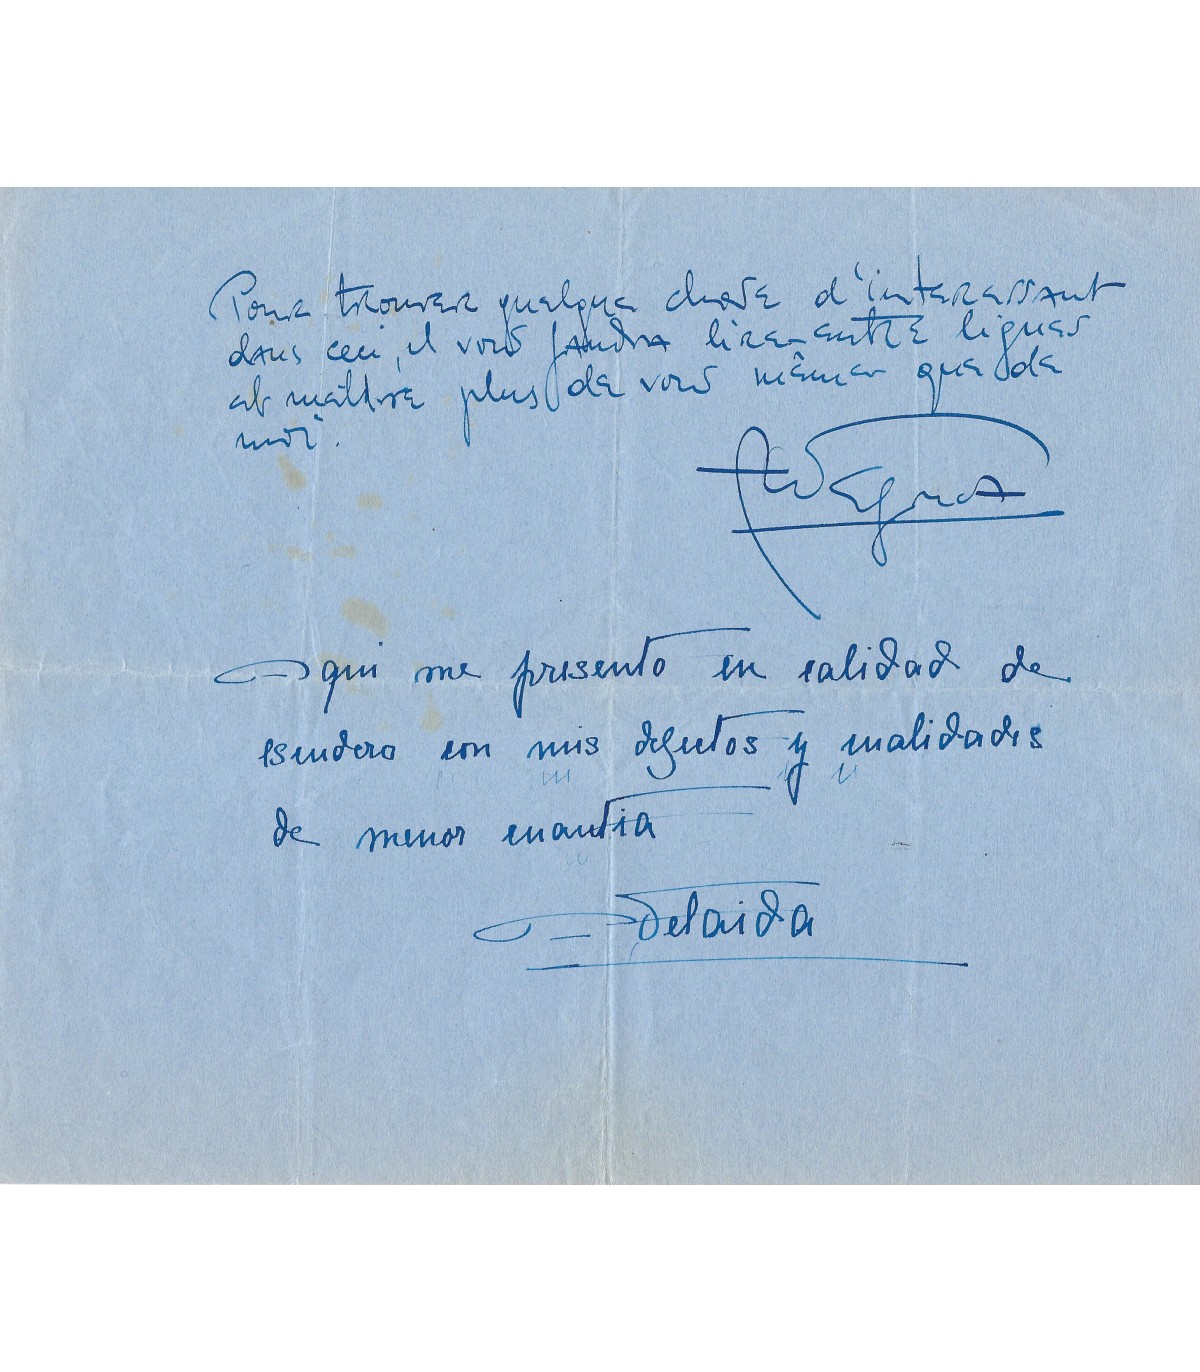 Pour trouver quelque chose d'interessant
dans ceci, il vous faudra lire entre lignes
et mettre plus de vous même que de
moi.
Aqui me presento en calidad de
escudero con mis defectos y cualidades
de menor cuantia
Adelaida